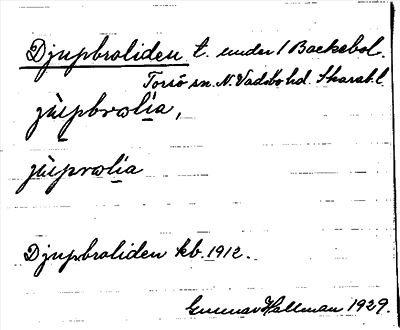 Djupbraliden t. under 1 Backebol.
Torsö sn. N. Vadsbo hd. Skarab. l.
jùpbralìa,
jùpralìa
Djupbraliden kb. 1912.
Gunnar Hallman 1929.